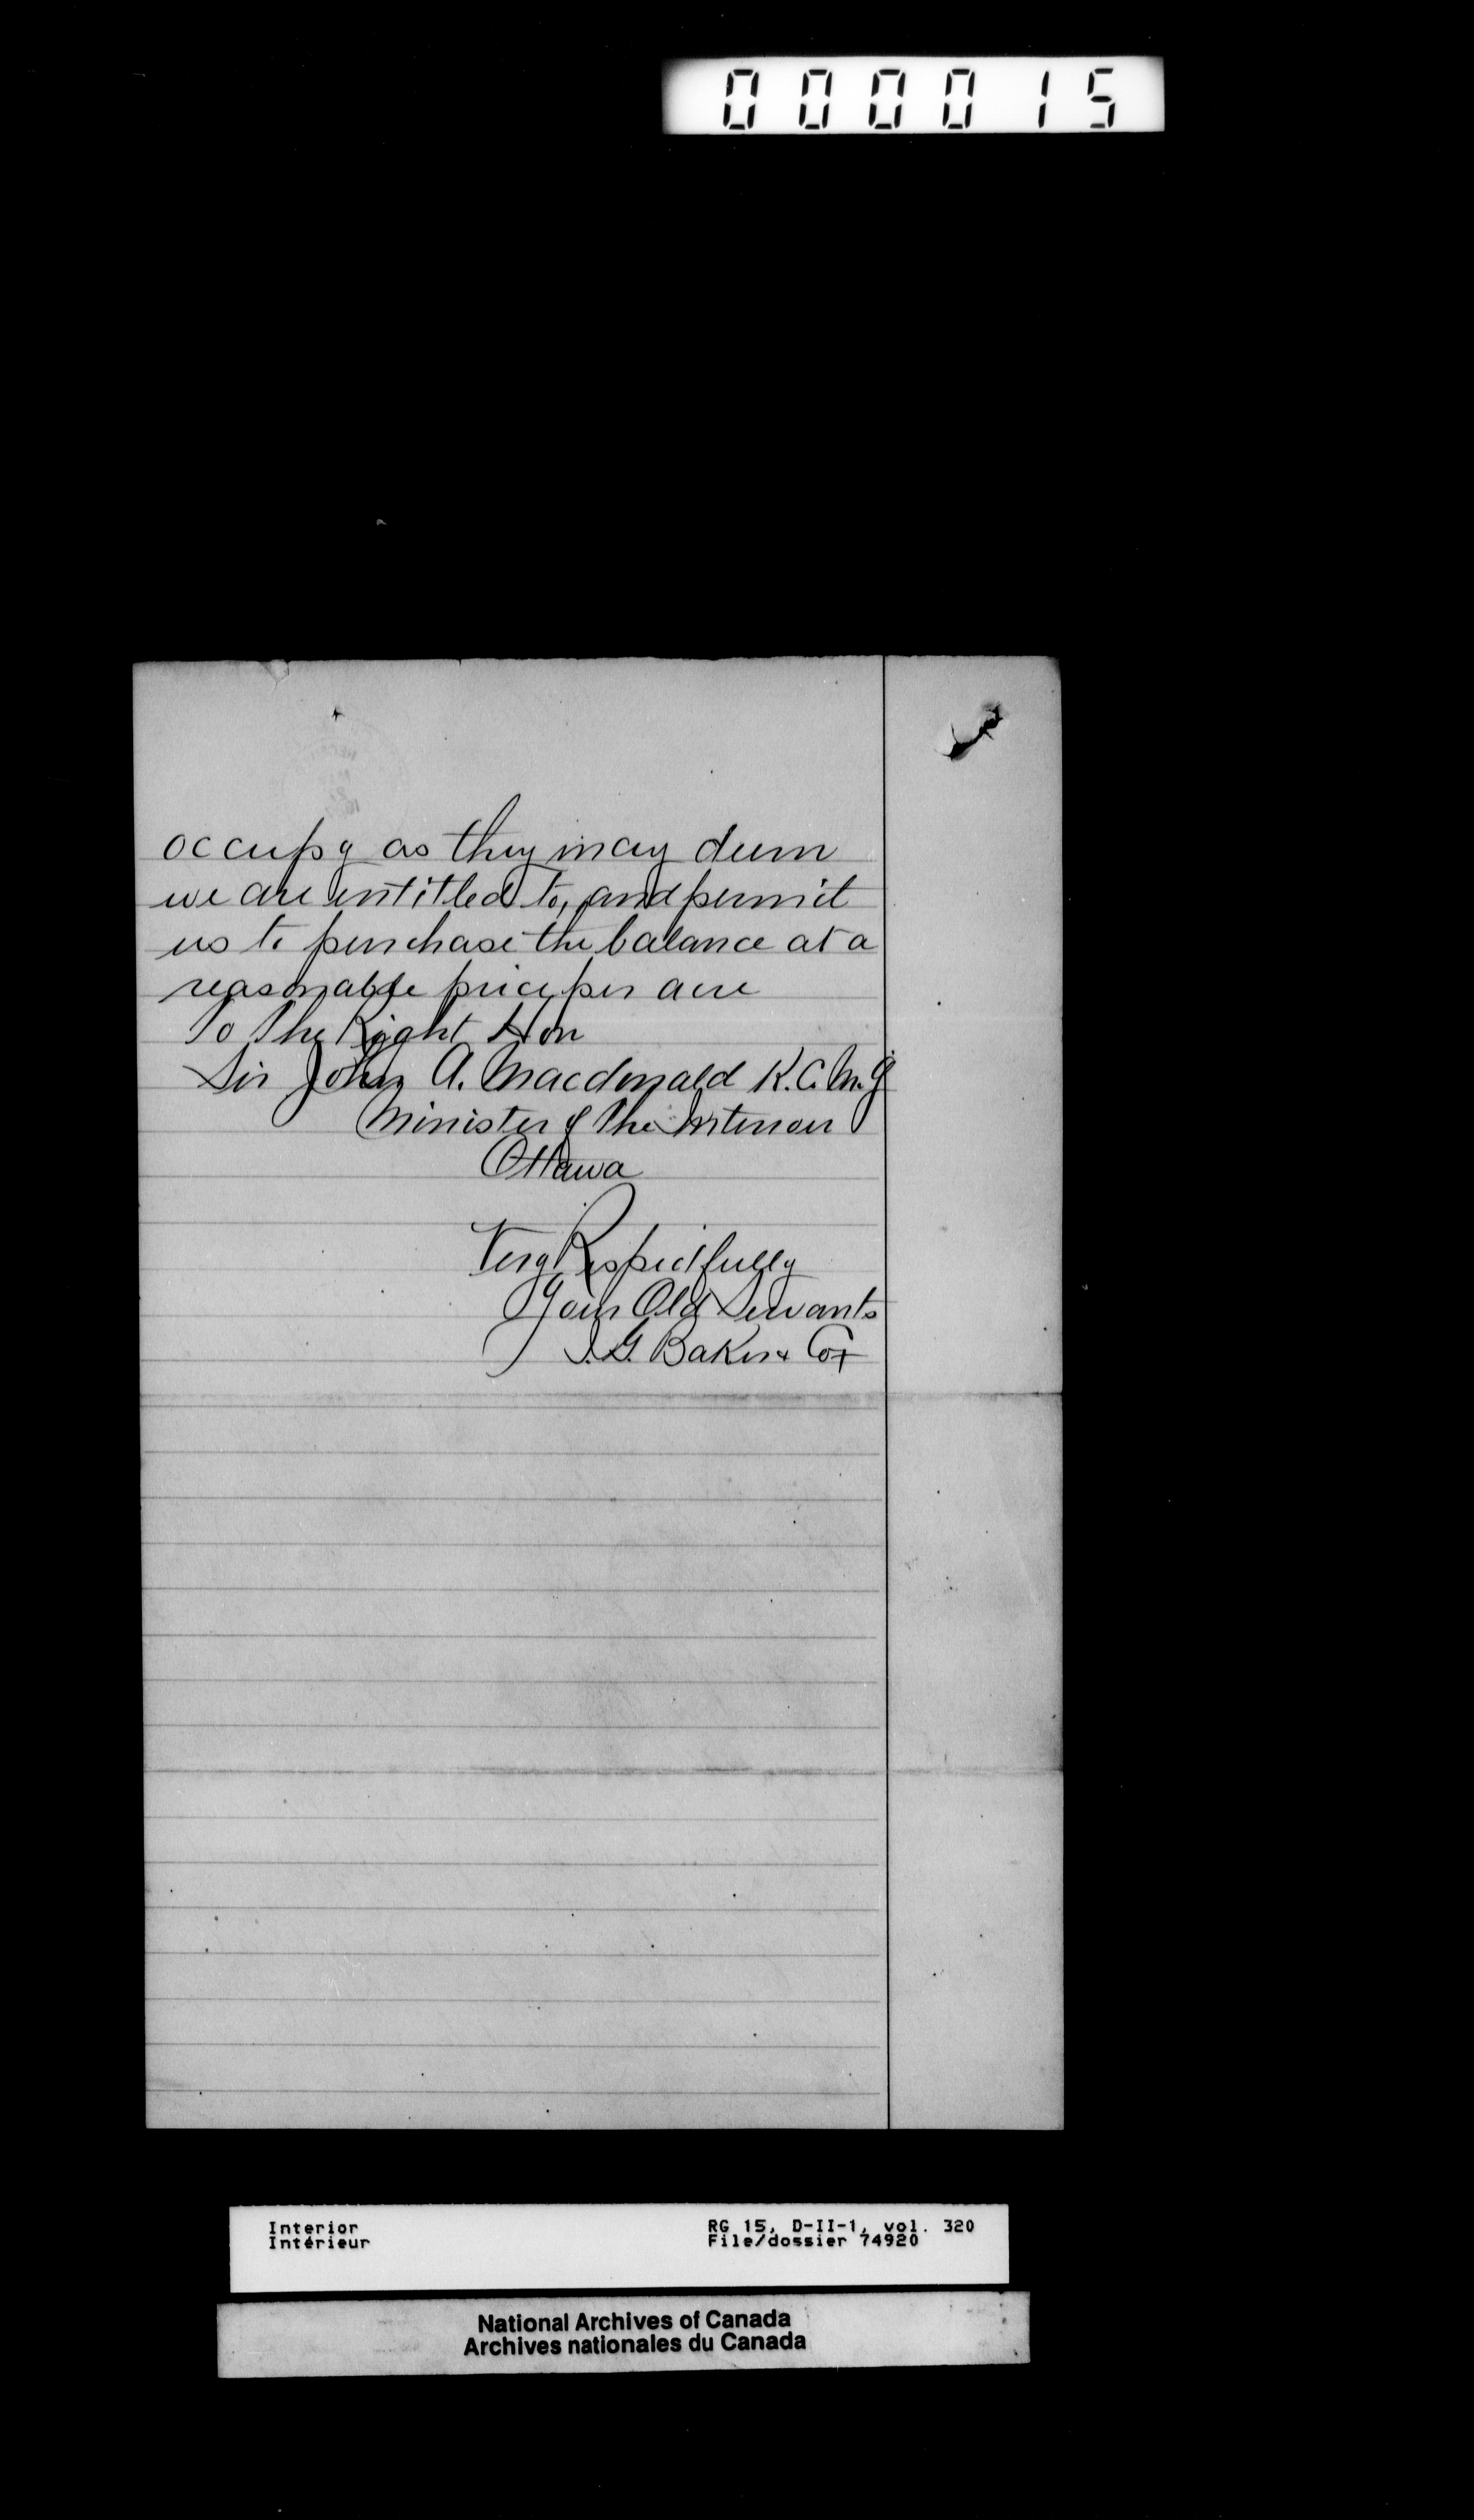 000015
occupy as they may deem
we are entitled to, and permit
us to purchase the balance at a
reasonable price per acre
To The Right Hon
Sir John A. Macdonald K.C.M.G
Minister of The Interior
Ottawa
Very Respectfully
Your Obd Servants
I. G. Baker & Co
Interior
Intérieur
RG 15, D-II-1, vol. 320
File/dossier 74920
National Archives of Canada
Archives nationales du Canada